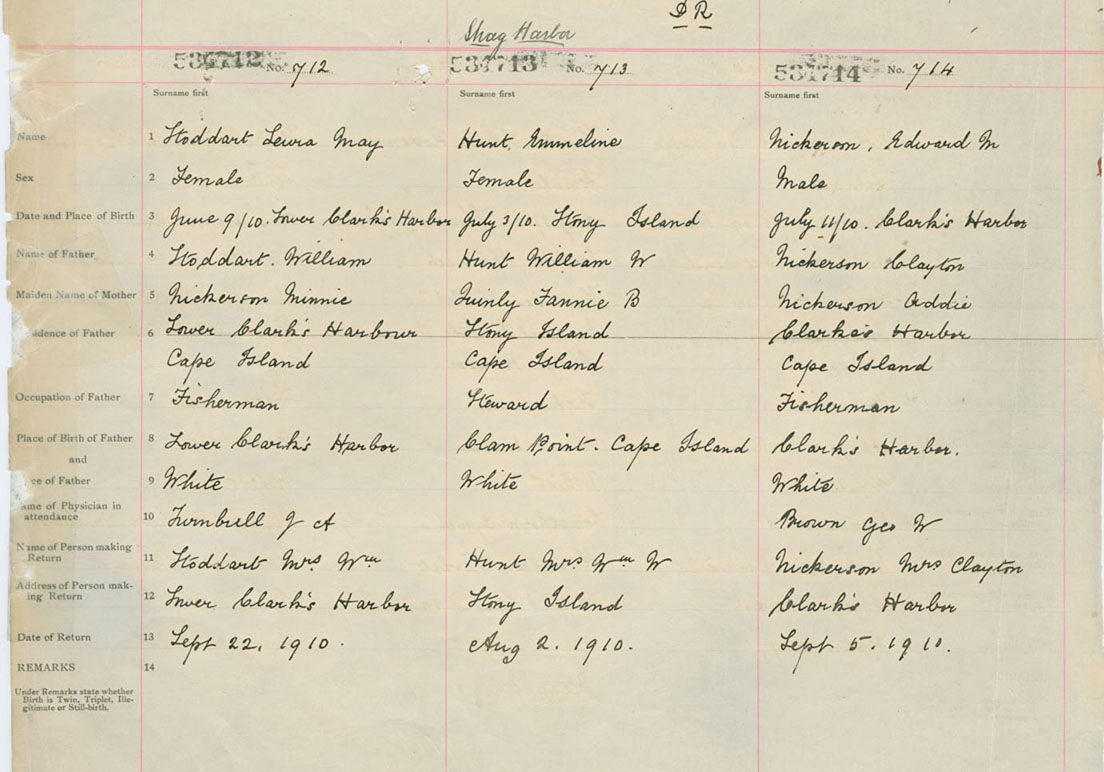 D R
Shag Harbor
534712 No. 712 534713 No. 713 534714 No. 714
Surname first Surname first Surname first
Name 1 Stoddart Lewra May Hunt, Emmeline Nickerson, Edward M
Sex 2 Female Female Male
Date and Place of Birth 3 June 9/10. Lower Clark's Harbor July 3/10. Stony Island July 11/10. Clark's Harbor
Name of Father 4 Stoddart. William Hunt William W Nickerson Clayton
Maiden Name of Mother 5 Nickerson Minnie Quinly Fannie B Nickerson Addie
idence of Father 6 Lower Clark's Harbour Stony Island Clarke's Harbor
Cape Island Cape Island Cape Island
Occupation of Father 7 Fisherman Steward Fisherman
Place of Birth of Father 8 Lower Clark's Harbor Clam Point. Cape Island Clark's Harbor.
and
ce of Father 9 White White White
ame of Physician in
attendance 10 Turnbull J A Brown Geo W
Name of Person making
Return 11 Stoddart Mrs Wm Hunt Mrs Wm W Nickerson Mrs Clayton
Address of Person mak-
ing Return 12 Lower Clark's Harbor Stony Island Clark's Harbor
Date of Return 13 Sept 22. 1910. Aug 2. 1910. Sept 5. 1910.
REMARKS 14
Under Remarks state whether
Birth is Twin, Triplet, Ille-
gitimate or Still-birth.